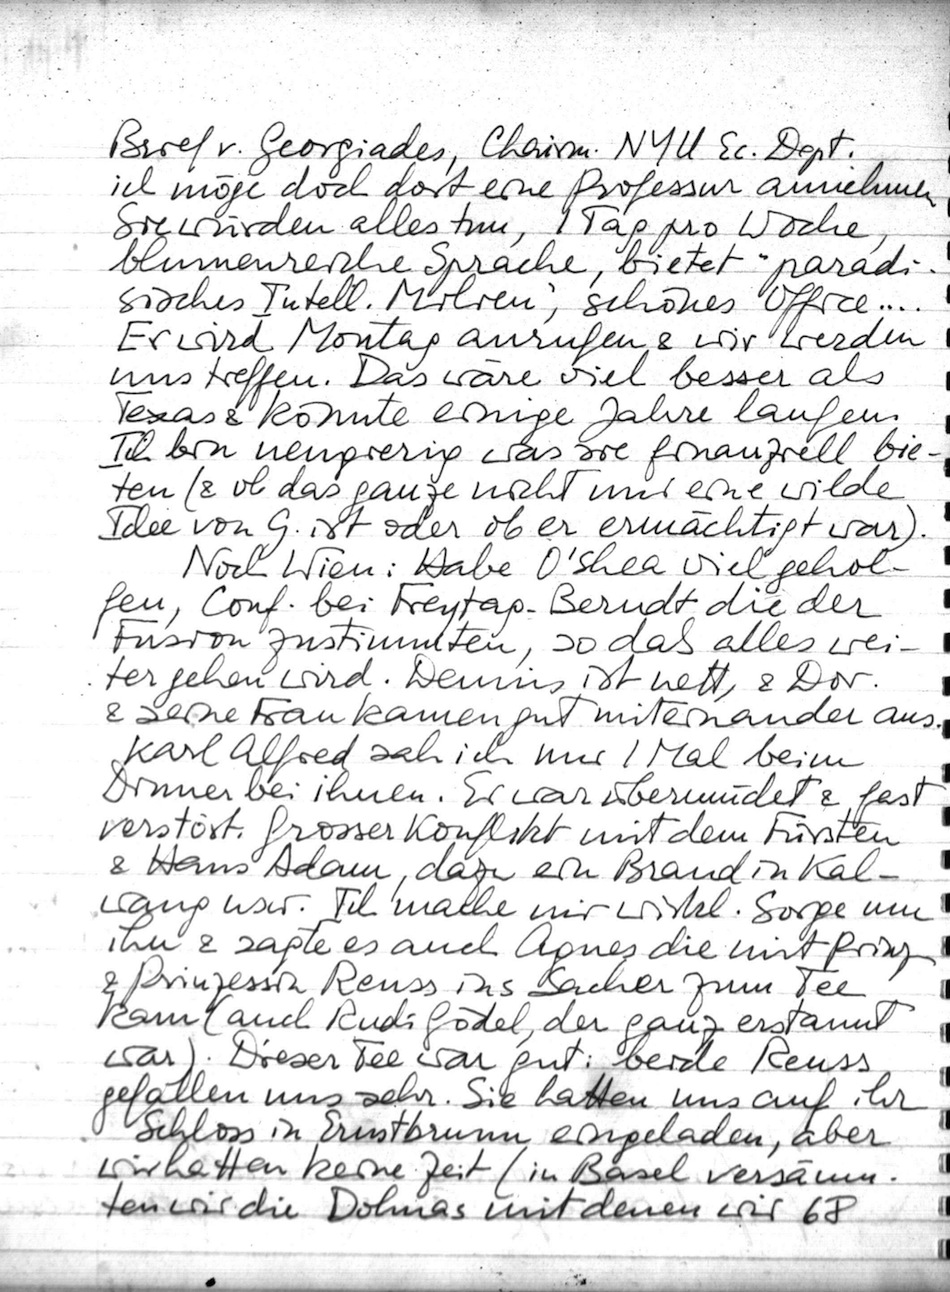 Brief v. Georgiades, Chairm. NYU Ec. Dept.
ich möge doch dort eine Professur annehmen
Sie würden alles tun, 1 Tag pro Woche,
blumenreiche Sprache, bietet "paradi-
sisches Intell. Milieu", schönes Office....
Er wird Montag anrufen & wir werden
uns treffen. Das wäre viel besser als
Texas & könnte einige Jahre laufen.
Ich bin neugierig was sie finanziell bie-
ten (& ob das ganze nicht nur eine wilde
Idee von G. ist oder ob er ermächtigt war).
Noch Wien: Habe O'Shea viel gehol-
fen, Conf. bei Freytag-Berndt die der
Fusion zustimmten, so daß alles wei-
tergehen wird. Dennis ist nett, & Dor.
& seine Frau kamen gut miteinander aus.
Karl Alfred sah ich nur 1 Mal beim
Dinner bei ihnen. Er war übermüdet & fast
verstört. Grosser Konflikt mit dem Fürsten
& Hans Adam, dazu ein Brand in Kal-
wang usw. Ich mache mir wirkl. Sorge um
ihn & sagte es auch Agnes die mit Prinz
& Prinzessin Reuss ins Sacher zum Tee
kam (auch Rudi Gödel, der ganz erstaunt
war). Dieser Tee war gut: beide Reuss
gefallen uns sehr. Sie hatten uns auf ihr
Schloss in Ernstbrunn eingeladen, aber
wir hatten keine Zeit (in Basel versäum-
ten wir die Dolmas mit denen wir 68